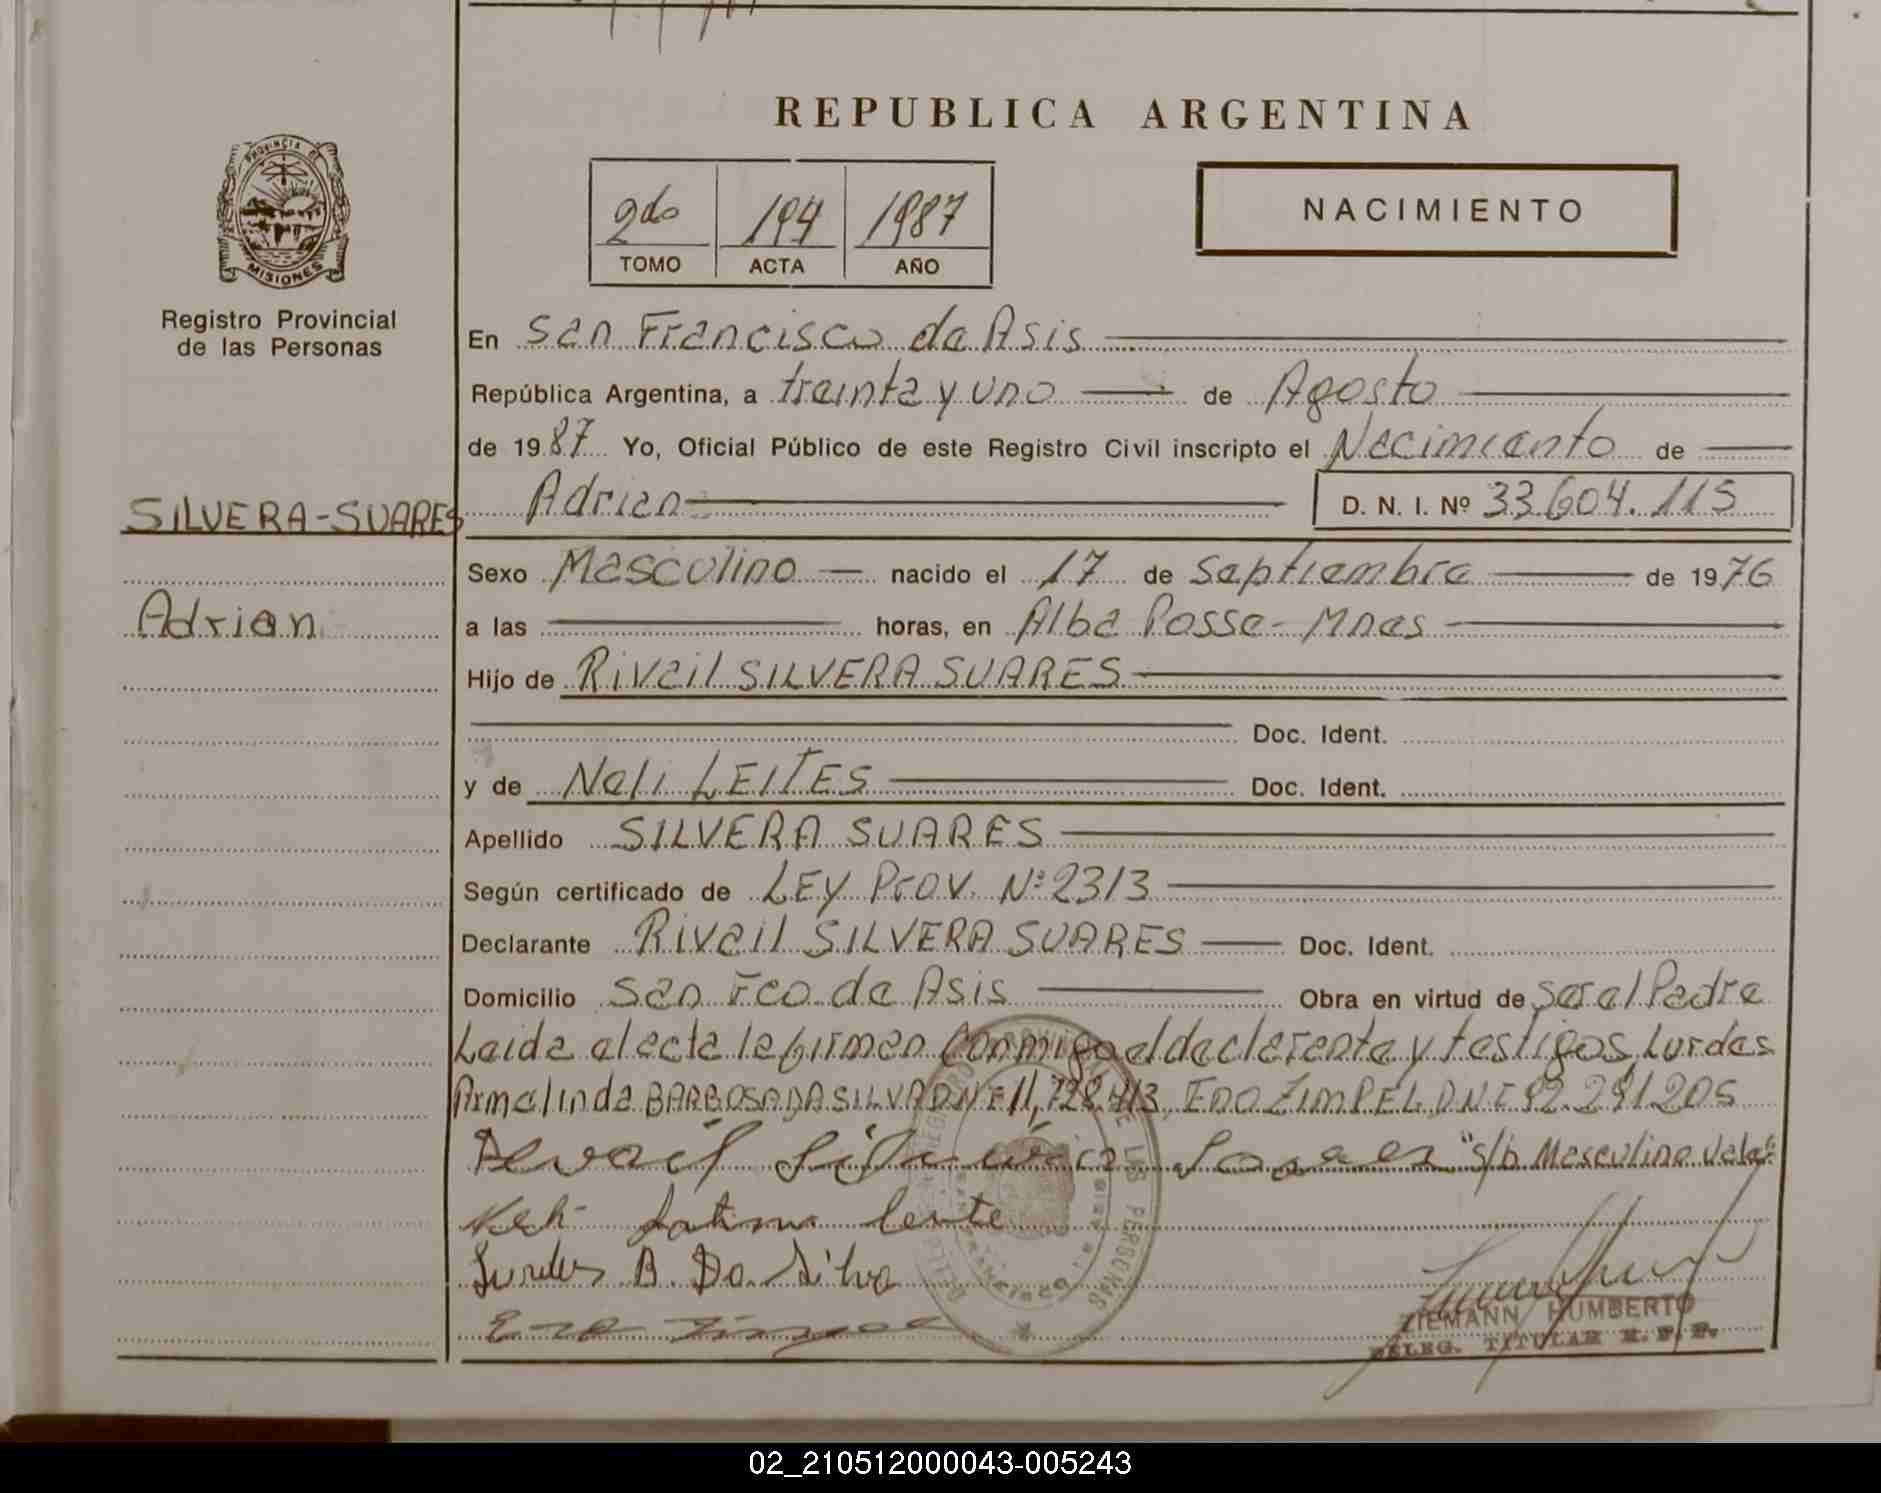 REPUBLICA ARGENTINA
PROVINCIA DE
MISIONES
Registro Provincial
de las Personas
2do 194 1987
TOMO ACTA AÑO
NACIMIENTO
En San Francisco de Asis
República Argentina, a treinta y uno de Agosto
de 1987 Yo, Oficial Público de este Registro Civil inscripto el Nacimiento de
Adrian D. N. I. Nº 33.604.115
SILVERA-SUARES
Adrian
Sexo Masculino nacido el 17 de Septiembre de 1976
a las horas, en Alba Posse - Mnes
Hijo de Rivail SILVERA SUARES
Doc. Ident.
y de Neli LEITES Doc. Ident.
Apellido SILVERA SUARES
Según certificado de LEY Prov. Nº 2313
Declarante Rivail SILVERA SUARES Doc. Ident.
Domicilio San Fco de Asis Obra en virtud de ser el Padre
Leida el acta la firman conmigo el declarante y testigos, Lurdes
Armelinda BARBOSA DA SILVA DNI 11,728.413, ENO ZIMPEL DNI 92.291.205
Silvério Soares "s/b Masculino Vale"
Neli Fatima Leite
Lurdes B. Da Silva
Eno
ZIEMANN HUMBERTO
DELEG. TITULAR R. P. P.
02_210512000043-005243